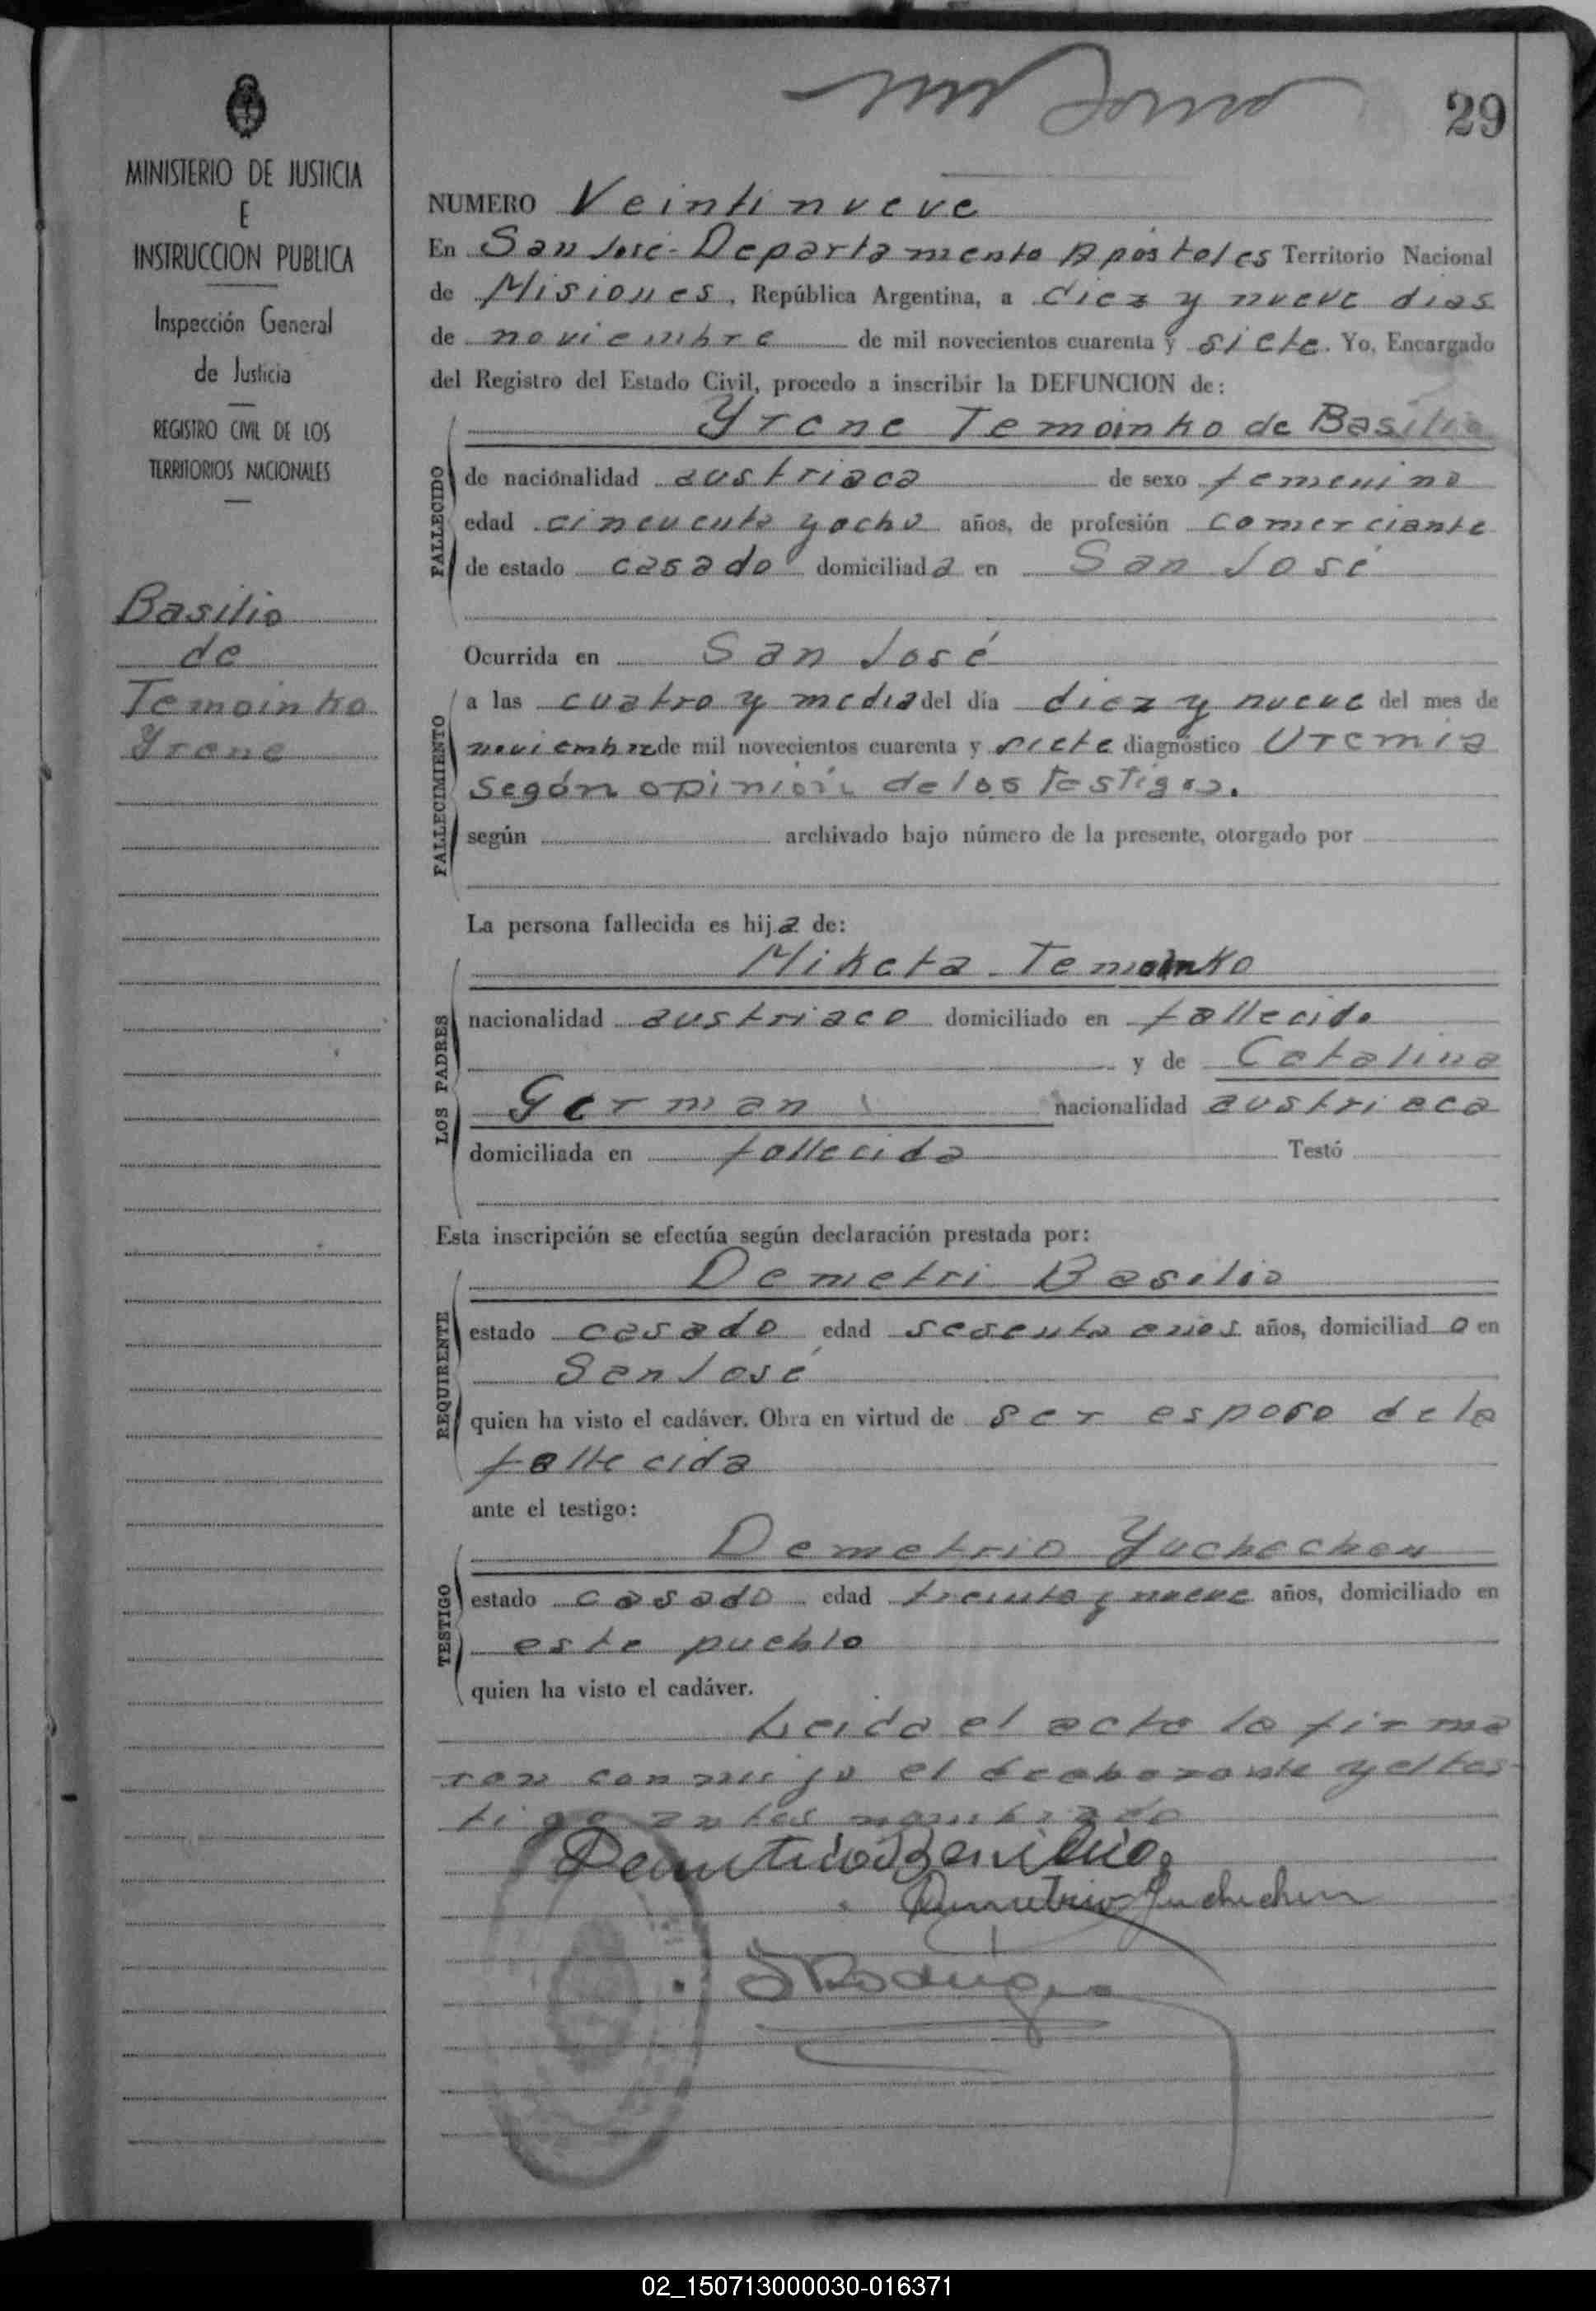 29
MINISTERIO DE JUSTICIA
E
INSTRUCCION PUBLICA
Inspección General
de Justicia
REGISTRO CIVIL DE LOS
TERRITORIOS NACIONALES
Basilio
de
Temoinko
Yrene
NUMERO Veintinueve
En San José - Departamento Apóstoles Territorio Nacional
de Misiones, República Argentina, a diez y nueve dias
de noviembre de mil novecientos cuarenta y siete. Yo, Encargado
del Registro del Estado Civil, procedo a inscribir la DEFUNCION de:
Yrene Temoinko de Basilio
FALLECIDO
de nacionalidad austriaca de sexo femenino
edad cincuenta y ocho años, de profesión comerciante
de estado casado domiciliada en San José
Ocurrida en San José
FALLECIMIENTO
a las cuatro y media del día diez y nueve del mes de
noviembre de mil novecientos cuarenta y siete diagnóstico Uremia
según opinión de los Testigos.
según archivado bajo número de la presente, otorgado por
La persona fallecida es hija de:
LOS PADRES
Miketa Temoinko
nacionalidad austriaco domiciliado en fallecido
y de Catalina
German nacionalidad austriaca
domiciliada en fallecida Testó
Esta inscripción se efectúa según declaración prestada por:
REQUIRENTE
Demetri Basilio
estado casado edad sesenta años años, domiciliado en
San José
quien ha visto el cadáver. Obra en virtud de ser esposo de la
fallecida
ante el testigo:
TESTIGO
Demetrio Yuchechen
estado casado edad treinta y nueve años, domiciliado en
este pueblo
quien ha visto el cadáver.
Leida el acta la firma
ron conmigo el y el tes-
tigo antes nombrado
Demetrio Basilio
Demetrio Yuchechen
Rodríguez
02_150713000030-016371